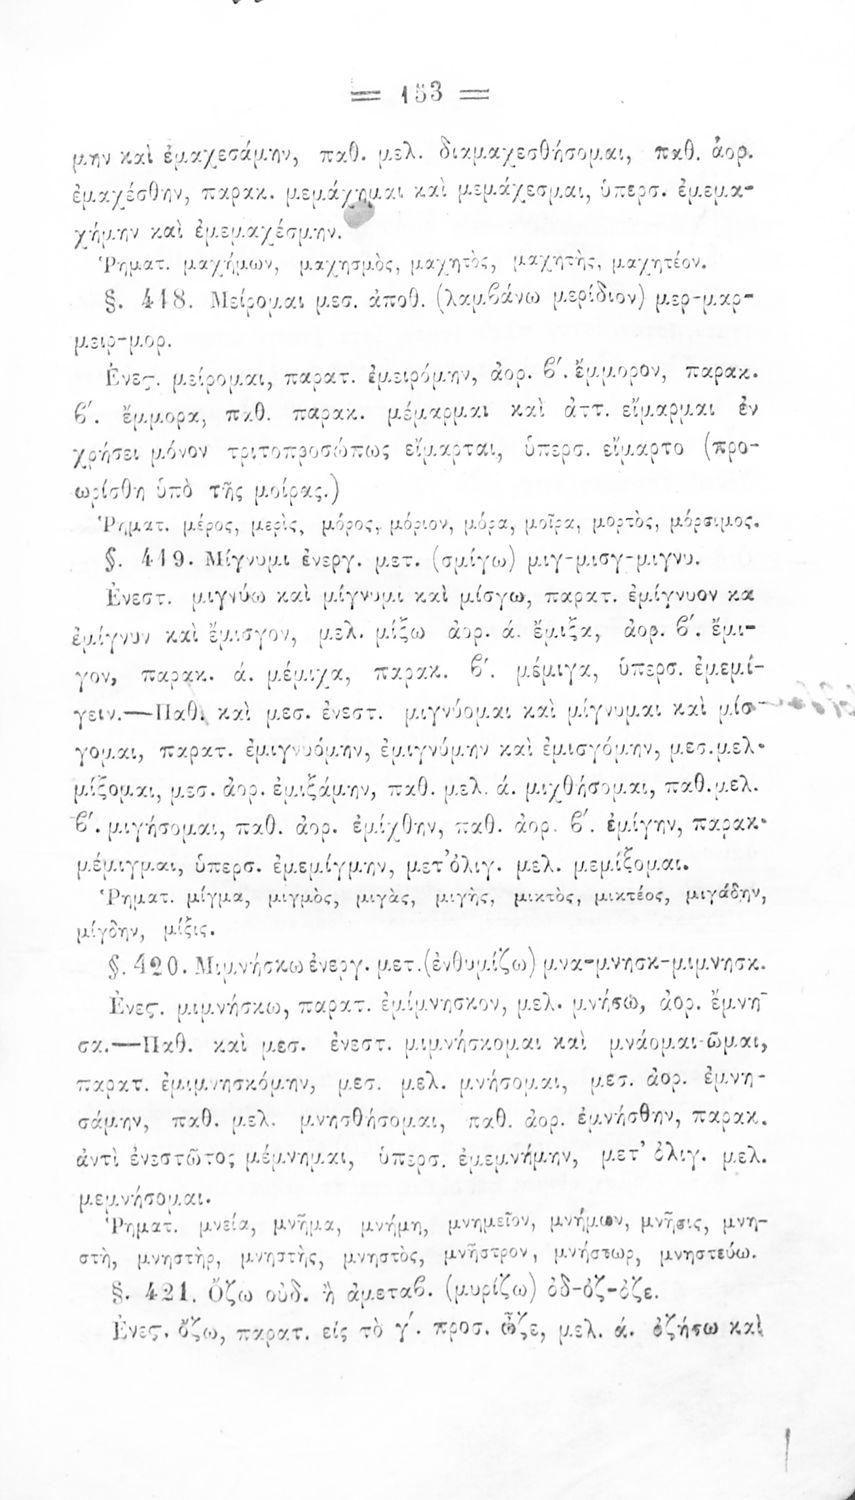 = 153 =
μην καὶ ἐμαχεσάμην, παθ. μελ. διαμαχεσθήσομαι, παθ. ἀορ.
ἐμαχέσθην, παρακ. μεμάχημαι καὶ μεμάχεσμαι, ὑπερσ. ἐμεμα-
χήμην καὶ ἐμεμαχέσμην.
Ῥηματ. μαχήμων, μαχησμὸς, μαχητὸς, μαχητὴς, μαχητέον.
§. 418. Μείρομαι μεσ. ἀποθ. (λαμβάνω μερίδιον) μερ-μαρ-
μειρ-μορ.
Ἐνεϛ. μείρομαι, παρατ. ἐμειρόμην, ἀορ. β´. ἔμμορον, παρακ.
β´. ἔμμορα, παθ. παρακ. μέμαρμαι καὶ ἀττ. εἵμαρμαι ἐν
χρήσει μόνον τριτοπροσώπως εἵμαρται, ὑπερσ. εἵμαρτο (προ-
ωρίσθη ὑπὸ τῆς μοίρας.)
Ῥηματ. μέρος, μερὶς, μόρος, μόριον, μόρα, μοῖρα, μορτὸς, μόρσιμος.
§. 419. Μίγνυμι ἐνεργ. μετ. (σμίγω) μιγ-μισγ-μιγνυ.
Ἐνεστ. μιγνύω καὶ μίγνυμι καὶ μίσγω, παρατ. ἐμίγνυον κα
ἐμίγνυν καὶ ἔμισγον, μελ. μίξω ἀορ. ά. ἔμιξα, ἀορ. β´. ἔμι-
γον, παρακ. ά. μέμιχα, παρακ. β´. μέμιγα, ὑπερσ. ἐμεμί-
γειν.—Παθ. καὶ μεσ. ἐνεστ. μιγνύομαι καὶ μίγνυμαι καὶ μίσ-
γομαι, παρατ. ἐμιγνυόμην, ἐμιγνύμην καὶ ἐμισγόμην, μεσ.μελ.
μίξομαι, μεσ. ἀορ. ἐμιξάμην, παθ. μελ. ά. μιχθήσομαι, παθ.μελ.
β´. μιγήσομαι, παθ. ἀορ. ἐμίχθην, παθ. ἀορ. β´. ἐμίγην, παρακ.
μέμιγμαι, ὑπερσ. ἐμεμίγμην, μετ᾽ὀλιγ. μελ. μεμίξομαι.
Ῥηματ. μίγμα, μιγμὸς, μιγὰς, μιγὴς, μικτὸς, μικτέος, μιγάδην,
μίγδην, μίξις.
§. 420. Μιμνήσκω ἐνεργ. μετ.(ἐνθυμίζω) μνα-μνησκ-μιμνησκ.
Ἐνεϛ. μιμνήσκω, παρατ. ἐμίμνησκον, μελ. μνήσω, ἀορ. ἔμνη-
σα.—Παθ. καὶ μεσ. ἐνεστ. μιμνήσκομαι καὶ μνάομαι-ῶμαι,
παρατ. ἐμιμνησκόμην, μεσ. μελ. μνήσομαι, μεσ. ἀορ. ἐμνη-
σάμην, παθ. μελ. μνησθήσομαι, παθ. ἀορ. ἐμνήσθην, παρακ.
ἀντὶ ἐνεστῶτος μέμνημαι, ὑπερσ. ἐμεμνήμην, μετ᾽ ὀλιγ. μελ.
μεμνήσομαι.
Ῥηματ. μνεία, μνῆμα, μνήμη, μνημεῖον, μνήμων, μνῆσις, μνη-
στὴ, μνηστὴρ, μνηστὴς, μνηστὸς, μνῆστρον, μνήστωρ, μνηστεύω.
§. 421. Ὄζω οὐδ. ἢ ἀμεταβ. (μυρίζω) ὀδ-ὀζ-ὀζε.
Ἐνεϛ. ὄζω, παρατ. εἰς τὸ γ´. προσ. ὦζε, μελ. ά. ὀζήσω καὶ